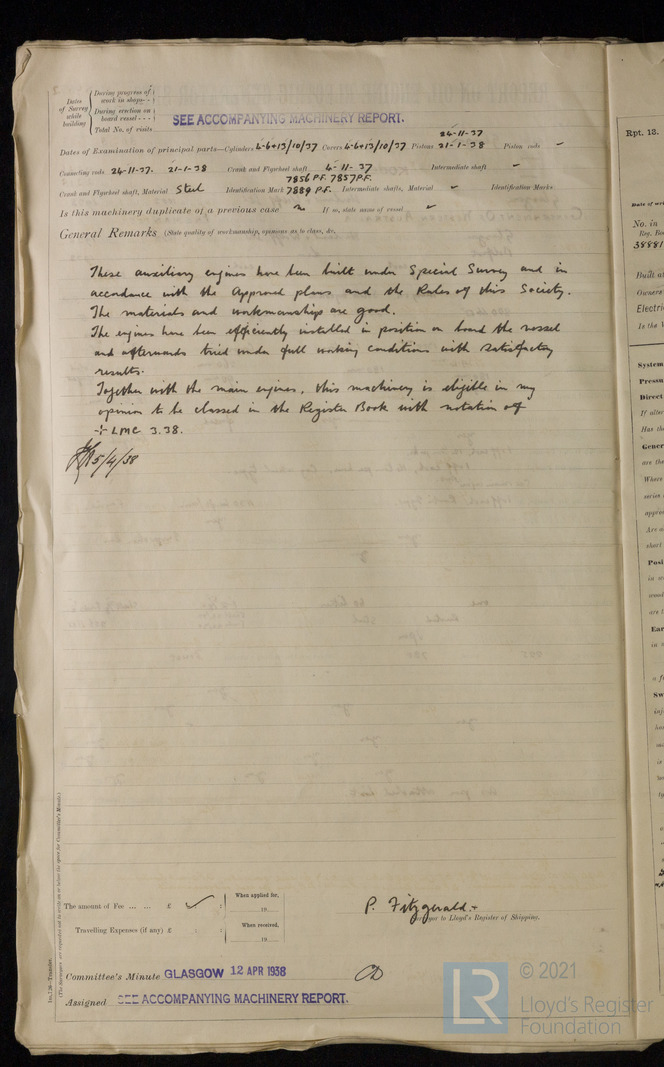 Dates of Survey while building
During progress of work in shops - -
During erection on board vessel - - -
Total No. of visits
SEE ACCOMPANYING MACHINERY REPORT.
24-11-37
Dates of Examination of principal parts—Cylinders 4-6+13/10/37 Covers 4-6+13/10/37 Pistons 21-1-38 Piston rods ✓
Connecting rods 24-11-37. 21-1-38 Crank and Flywheel shaft 4-11-37 Intermediate shaft ✓
7856 P.F. 7857 P.F.
Crank and Flywheel shaft, Material Steel Identification Mark 7889 P.F. Intermediate shafts, Material ✓ Identification Marks
Is this machinery duplicate of a previous case no If so, state name of vessel ✓
General Remarks (State quality of workmanship, opinions as to class, &c.
These auxiliary engines have been built under Special Survey and in
accordance with the Approved plans and the Rules of this Society.
The materials and workmanship are good.
The engines have been efficiently installed in position on board the vessel
and afterwards tried under full working conditions with satisfactory
results.
Together with the main engines, this machinery is eligible in my
opinion to be classed in the Register Book with notation of
+ LMC 3.38.
5/4/38
The amount of Fee ... ... £ ✓ :
When applied for,
19
Travelling Expenses (if any) £ : :
When received,
19
P. Fitzgerald
Surveyor to Lloyd's Register of Shipping.
Committee's Minute GLASGOW 12 APR 1938
Assigned SEE ACCOMPANYING MACHINERY REPORT.
(The Surveyors are requested not to write on or below the space for Committee's Minute.)
Rpt. 13.
No. in
Reg. Bo
38881
Built at
Owners
Electri
Is the
System
Pressu
Direct
If alter
Has the
Gener
are the
Where
series
approv
Are a
short
Posi
in w
Ear
LR
© 2021
Lloyd's Register
Foundation